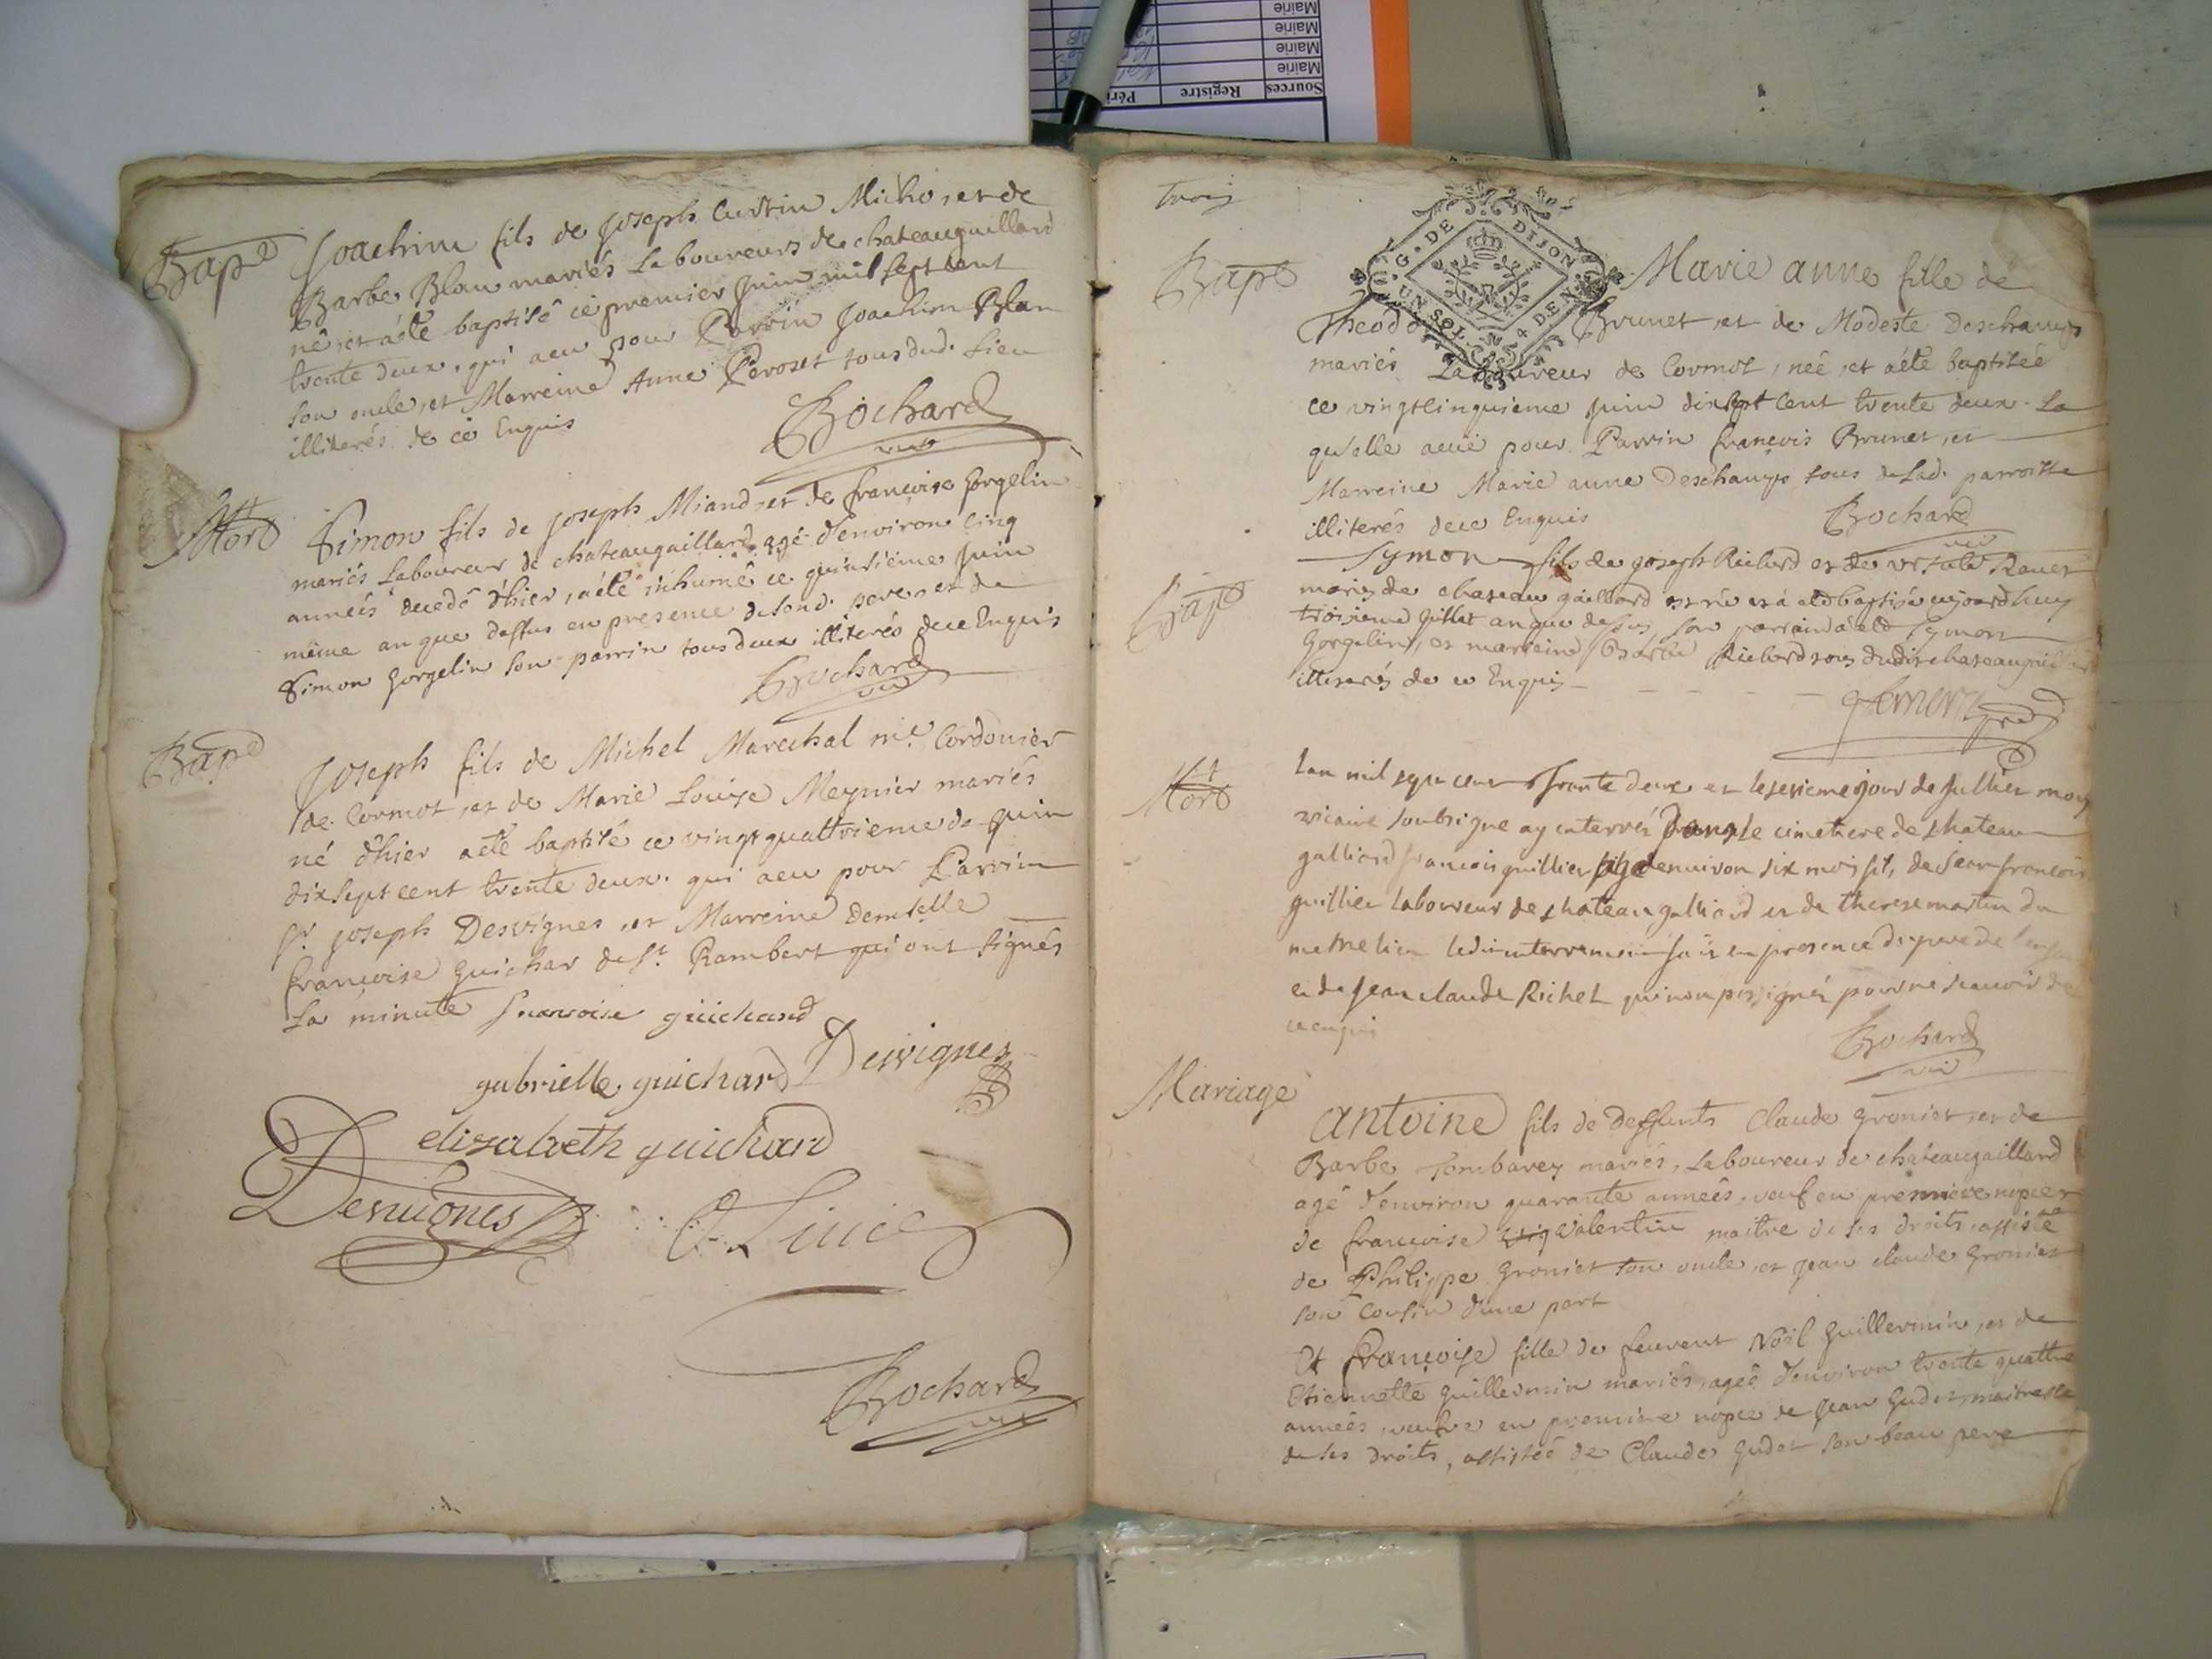 Sources Registre Péri
Mairie
Mairie
Mairie
Mairie
Bap.e
Joachim fils de Joseph Curtin Micho, et de
Barbe Blan mariés Laboureurs de chateaugaillard
né et a été baptisé ce premier Juin mil sept cent
trente deux, qui a eu pour Parrin Joachim Blan
son oncle, et Marreine Anne Peroset tous dud. lieu
illiterés de ce Enquis
Bochard
vic
Mort
Simon fils de Joseph Miand, et de francoise Gorgelin
mariés Laboureur de chateaugaillard agé d'environ cinq
années decedé d'hier, a été inhumé ce quinsième Juin
même an que dessus en presence de sond. pere, et de
Simon Gorgelin son parrin tous deux illiterés de ce Enquis
Bochard
vic
Bap.e
Joseph fils de Michel Marechal m.e Cordonier
de Cormot, et de Marie Louise Meynier mariés
né d'hier a été baptisé ce vingt quattrieme de Juin
dix sept cent trente deux. qui a eu pour Parrin
S.r Joseph Desvignes, et Marreine demlelle
francoise Guichar de S.t Rambert qui ont signés
La minute francoise guichard
gabrielle guichard Desvignes
elizabeth guichard
Desvignes
Bochard
vic
trois
G. DE DIJON
UN SOL 4 DEN
Bap.e
Marie anne fille de
Theodo Brunet, et de Modeste Deschamps
mariés Laboureur de Cormot, neé, et a été baptiseé
ce vingt cinquieme Juin dix sept cent trente deux. La
qu'elle a eüe pour Parrin francois Brunet, et
Marreine Marie anne Deschamps tous de lad. parroisse
illiterés de ce Enquis
Bochard
vic
Bap.e
Symon fils de Joseph Richard et de ursule Ravet
mariés de chateau gaillard est né et a eté baptisé aujourdhuy
troisieme Jullet an que dessus, son parrain a eté Symon
Gorgelin, et marreine Barbe Richard tous dudit chateaugaillard
illiterés de ce Enquis
Mort
Lan mil sept cent trente deux et le seisieme jour de Jullier moy
vicaire soubsigne ay enterré dans le cimetiere de chateau
galliard francois guillier agé denviron six mois fils de Jean francois
guillier laboureur de chateau galliard et de therese martin du
mesme lieu ledit enterrement fait en presence du pere de
et de Jean claude Richet qui non pas signés pour ne scauoir de
ce enquis
Bochard
vic
Mariage
Antoine fils de deffunts Claude Gronier, et de
Barbe Tombarey mariés, Laboureur de chateaugaillard
agé d'environ quarante années, veuf en premiere nopces
de francoise Valentin maitre de ses droits, assisté
de Philippe Gronier son oncle, et Jean claude Gronier
son Cousin d'une part
Et Françoise fille de feuvent Noïl Guillermin, et de
Etiennette Guillermin mariés, ageé d'environ trente quattre
années, veufve en premiere nopce de Jean Gudet, maitresse
de ses droits, assisteé de Claude Gudet son beau pere